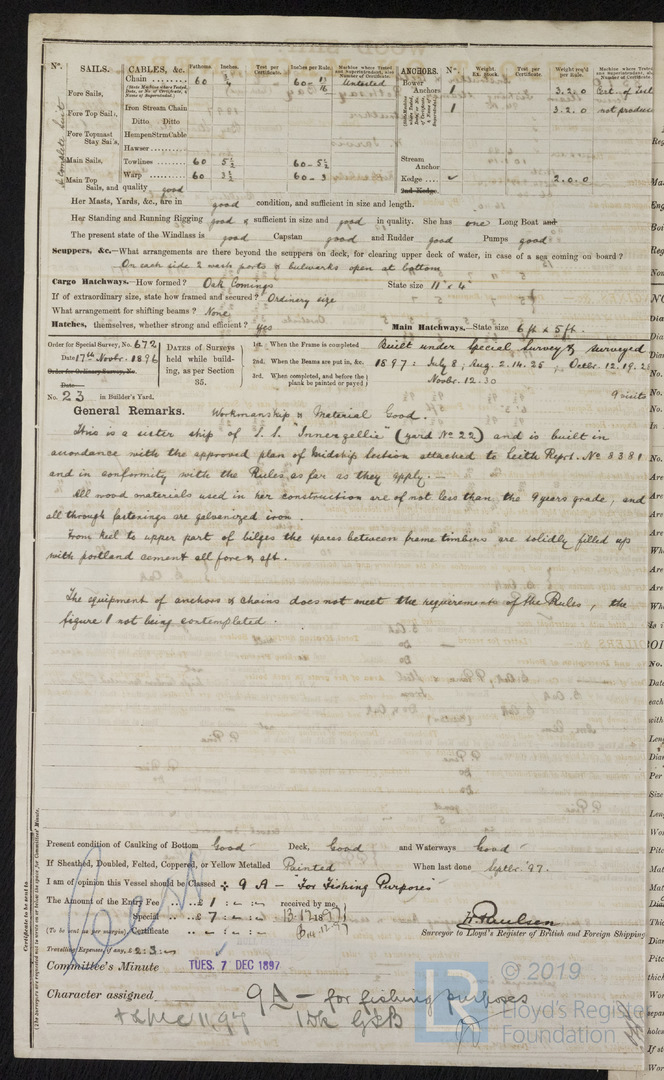 Nº. SAILS. CABLES, &c. Fathoms Inches. Test per Certificate. Inches per Rule. Machine where Tested and Superintendent, also Number of Certificate. ANCHORS. Nº. Weight. Ex. Stock. Test per Certificate. Weight req'd per Rule.
A complete suit
Fore Sails, Chain 60 60 - 11/16 Untested Bower Anchors 1 3.2.0 Cert. of Test
Fore Top Sails, Iron Stream Chain 1 3.2.0 not produced
Ditto Ditto
Fore Topmast Stay Sails, HempenStrmCable
Hawser
Main Sails, Towlines 60 5½ 60 - 5½ Stream Anchor
Main Top Sails, and quality good Warp 60 60 - 3 Kedge 2.0.0
2nd Kedge
Her Masts, Yards, &c., are in good condition, and sufficient in size and length.
Her Standing and Running Rigging good & sufficient in size and good in quality. She has one Long Boat and
The present state of the Windlass is good Capstan good and Rudder good Pumps good
Scuppers, &c.—What arrangements are there beyond the scuppers on deck, for clearing upper deck of water, in case of a sea coming on board?
On each side 2 wash ports & bulwarks open at bottom
Cargo Hatchways.—How formed? Oak Comings State size 11' x 4'
If of extraordinary size, state how framed and secured? Ordinary size
What arrangement for shifting beams? None
Hatches, themselves, whether strong and efficient? Yes Main Hatchways.—State size 6 ft x 5 ft.
Order for Special Survey, No. 672
Date 17th Novbr. 1896
Order for Ordinary Survey, No.
Date
No. 23 in Builder's Yard.
DATES of Surveys held while building, as per Section 35.
1st. When the Frame is completed
2nd. When the Beams are put in, &c.
3rd. When completed, and before the plank be painted or payed
Built under Special Survey & surveyed
1897: July 8, Aug. 2.14.25, Octbr. 12.19.2
Novbr. 12.30
9 visits
General Remarks. Workmanship & Material Good.
This is a sister ship of S.S. "Innergellie" (yard No 22) and is built in
accordance with the approved plan of Midship Section attached to Leith Rept. No 8381
and in conformity with the Rules as far as they apply. —
All wood materials used in her construction are of not less than the 9 years grade, and
all through fastenings are galvanized iron.
From keel to upper part of bilges the spaces between frame timbers are solidly filled up
with portland cement all fore & aft.
The equipment of anchors & chains does not meet the requirements of the Rules, the
figure 1 not being contemplated.
Present condition of Caulking of Bottom Good Deck, Good and Waterways Good
If Sheathed, Doubled, Felted, Coppered, or Yellow Metalled Painted When last done Septbr '97.
I am of opinion this Vessel should be Classed + 9 A - "For Fishing Purposes"
The Amount of the Entry Fee £ 1 : - : - received by me,
Special £ 7 : - : - 13.12.1897
(To be sent as per margin) Certificate " - : - : -
Travelling Expenses, if any, £ 2 : 3 : -
H. Paulsen
Surveyor to Lloyd's Register of British and Foreign Shipping
Committee's Minute TUES. 7 DEC 1897
Character assigned 9A - for fishing purposes
+ LMC 11,97 1 Dk G&B
Certificate to be sent to
(The Surveyors are requested not to write on or below the space for Committee's Minute.
© 2019
Lloyd's Register
Foundation